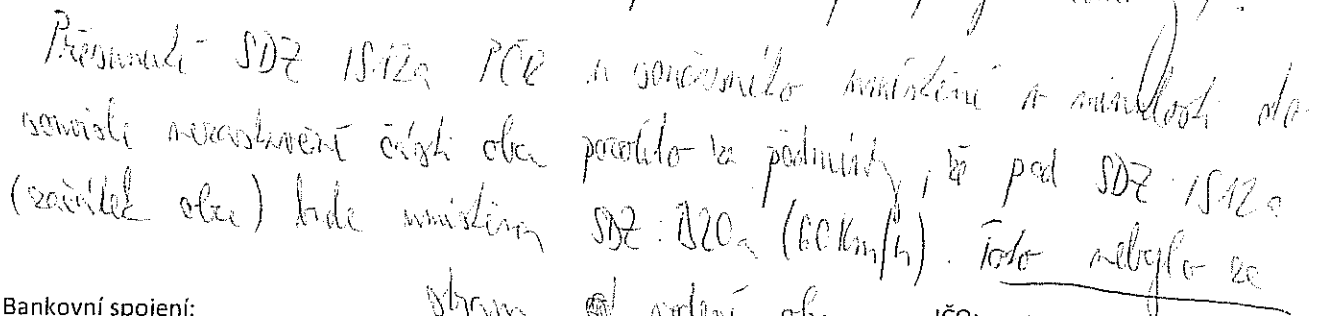 Přesunutí SDZ IS12a PČR z současného umístění v minulosti do
souvisle nezastavěné části obce povolilo za podmínky, že pod SDZ: IS12a
(začátek obce) bude umístěna SDZ: B20a (60 km/h). Toto nebylo ze
strany vedení
Bankovní spojení:
IČO: